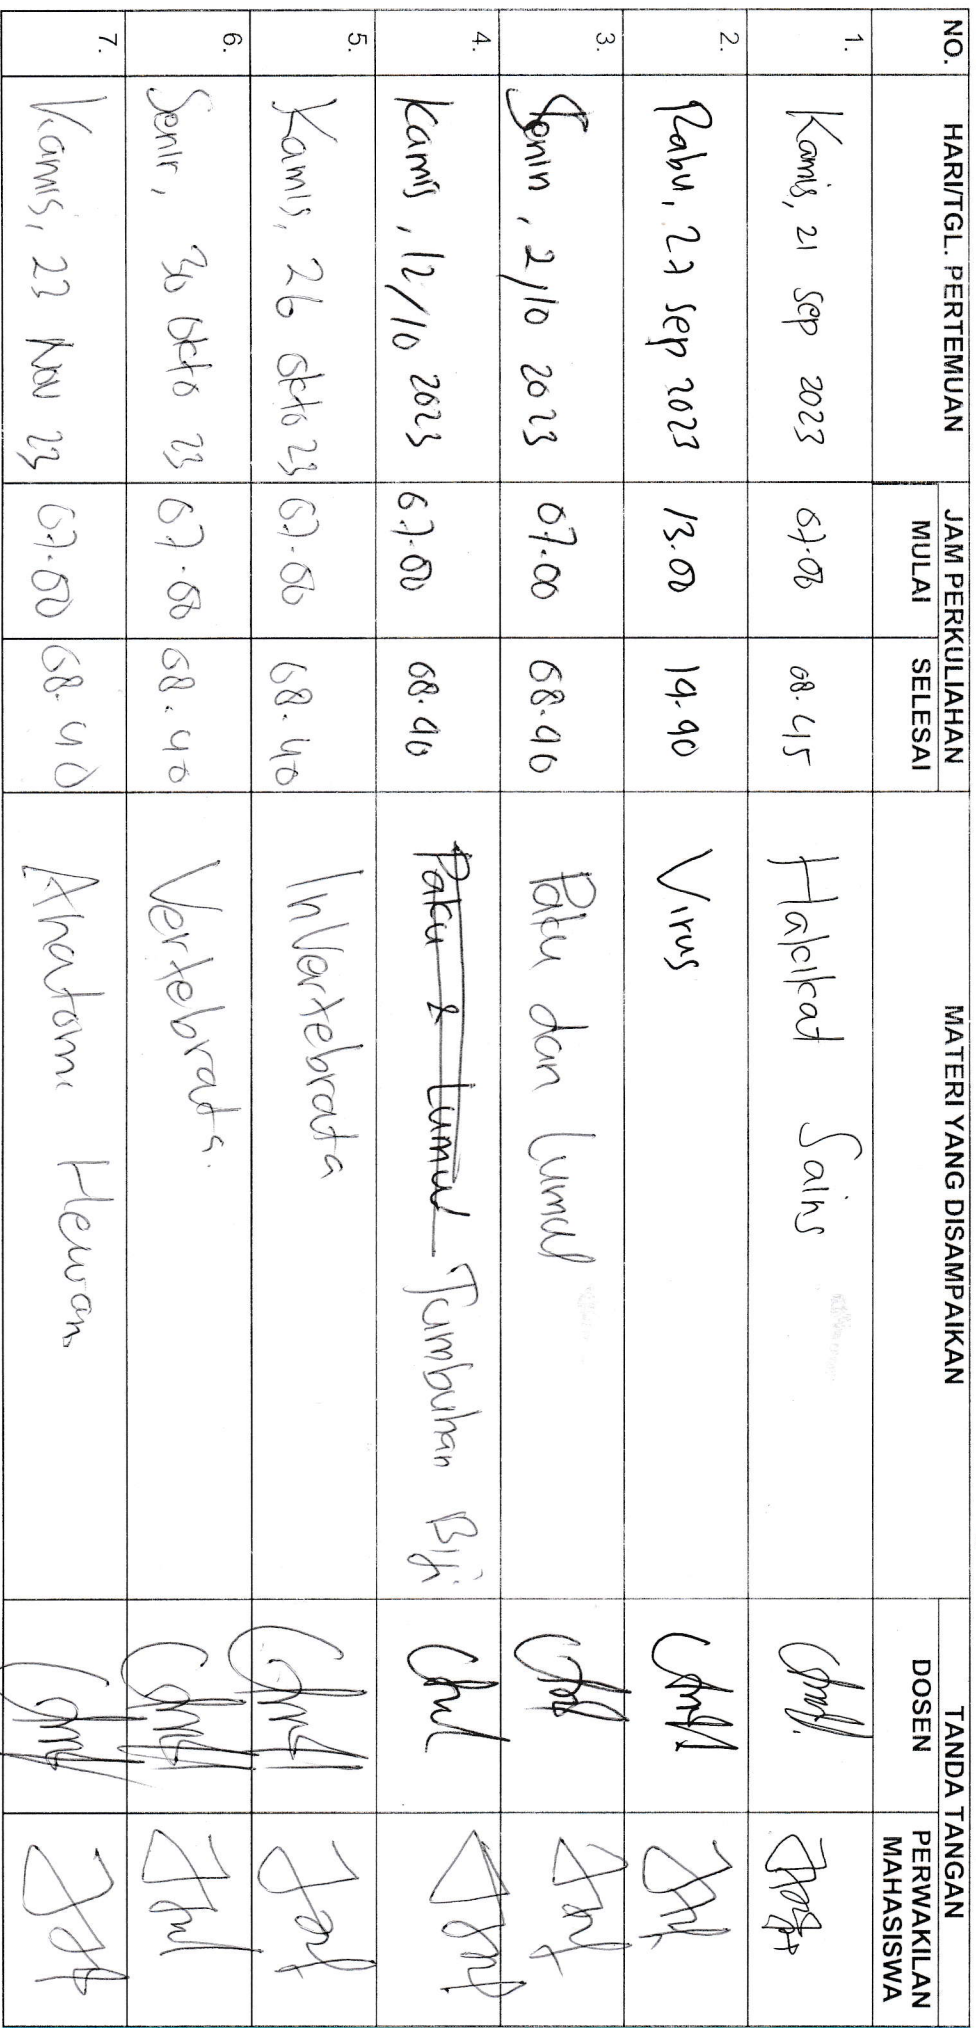 NO. HARI/TGL. PERTEMUAN JAM PERKULIAHAN MATERI YANG DISAMPAIKAN TANDA TANGAN
MULAI SELESAI DOSEN PERWAKILAN MAHASISWA
1. Kamis, 21 Sep 2023 07.00 08.45 Hakikat Sains
2. Rabu, 27 Sep 2023 13.00 14.40 Virus
3. Senin, 2/10 2023 07.00 08.40 Paku dan Lumut
4. Kamis, 12/10 2023 07.00 08.40 Paku & Lumut Tumbuhan Biji
5. Kamis, 26 Okto 23 07.00 08.40 InVertebrata
6. Senin, 30 Okto 23 07.00 08.40 Vertebrata.
7. Kamis, 23 Nov 23 07.00 08.40 Anatomi Hewan